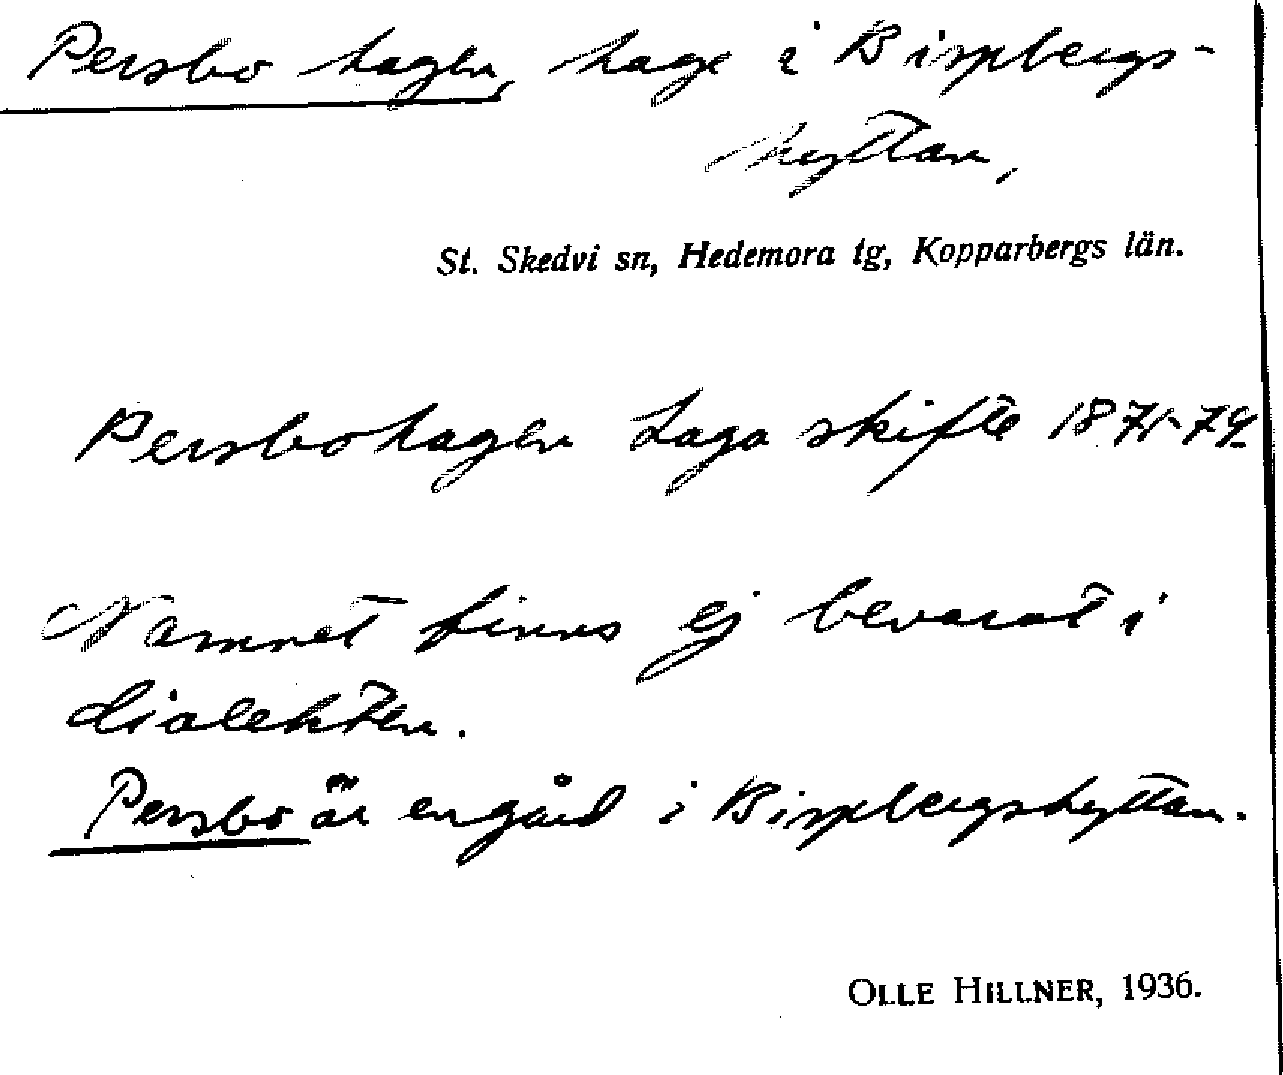 Persbo hagen, hage i Bispbergs-
hyttan,
St. Skedvi sn, Hedemora tg, Kopparbergs län.
Persbohagen Laga skifte 1871-74
Namnet finns ej bevarat i
dialekten.
Persbo är en gård i Bispbergshyttan.
OLLE HILLNER, 1936.